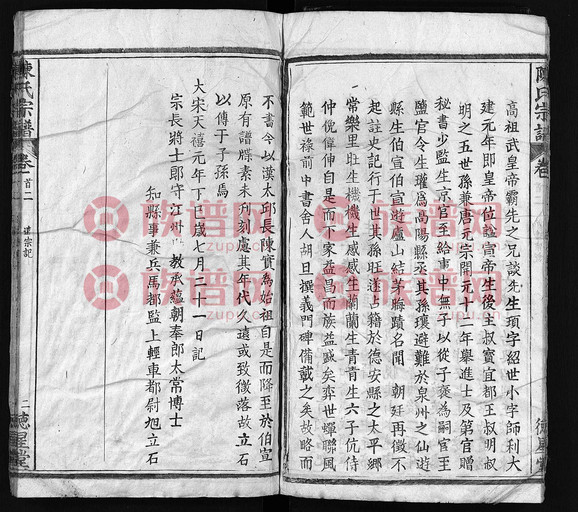 高祖武皇帝霸先之兄談先生頊字紹世小字師利大
建元年即皇帝位諡宣帝生後主叔寶宜都王叔明叔
明之五世孫兼唐元宗開元十二年舉進士及第官贈
秘書少監生京官至給事中無子以從子褒為嗣官至
鹽官令生瓘為高陽縣丞其孫瓌避難於泉州之仙遊
縣生伯宣伯宣遊廬山結茅晦蹟名聞 朝廷再徵不
起註史記行于世其孫旺遂占籍於德安縣之太平鄉
常樂里旺生機機生感感生蘭蘭生青青生六子伉侍
仲俛偉伸自是而下家益昌而族益蕃矣弈世蟬聯風
範世祿前中書舍人胡旦撰義門碑備載之矣故略而
陳氏宗譜
卷
陳氏宗譜
卷首二
不書今以漢太邱長陳實為始祖自是而降至於伯宣
原有譜牒素未刊刻慮其年代久遠或致徵落故立石
以傳于子孫焉
大宋天禧元年丁巳歲七月三十一日記
宗長將士郎守江州 教承蘊朝奉郎太常博士
知縣事兼兵馬都監上輕車都尉旭立石
二
德星堂
族谱网
族谱网
族谱网
族谱网